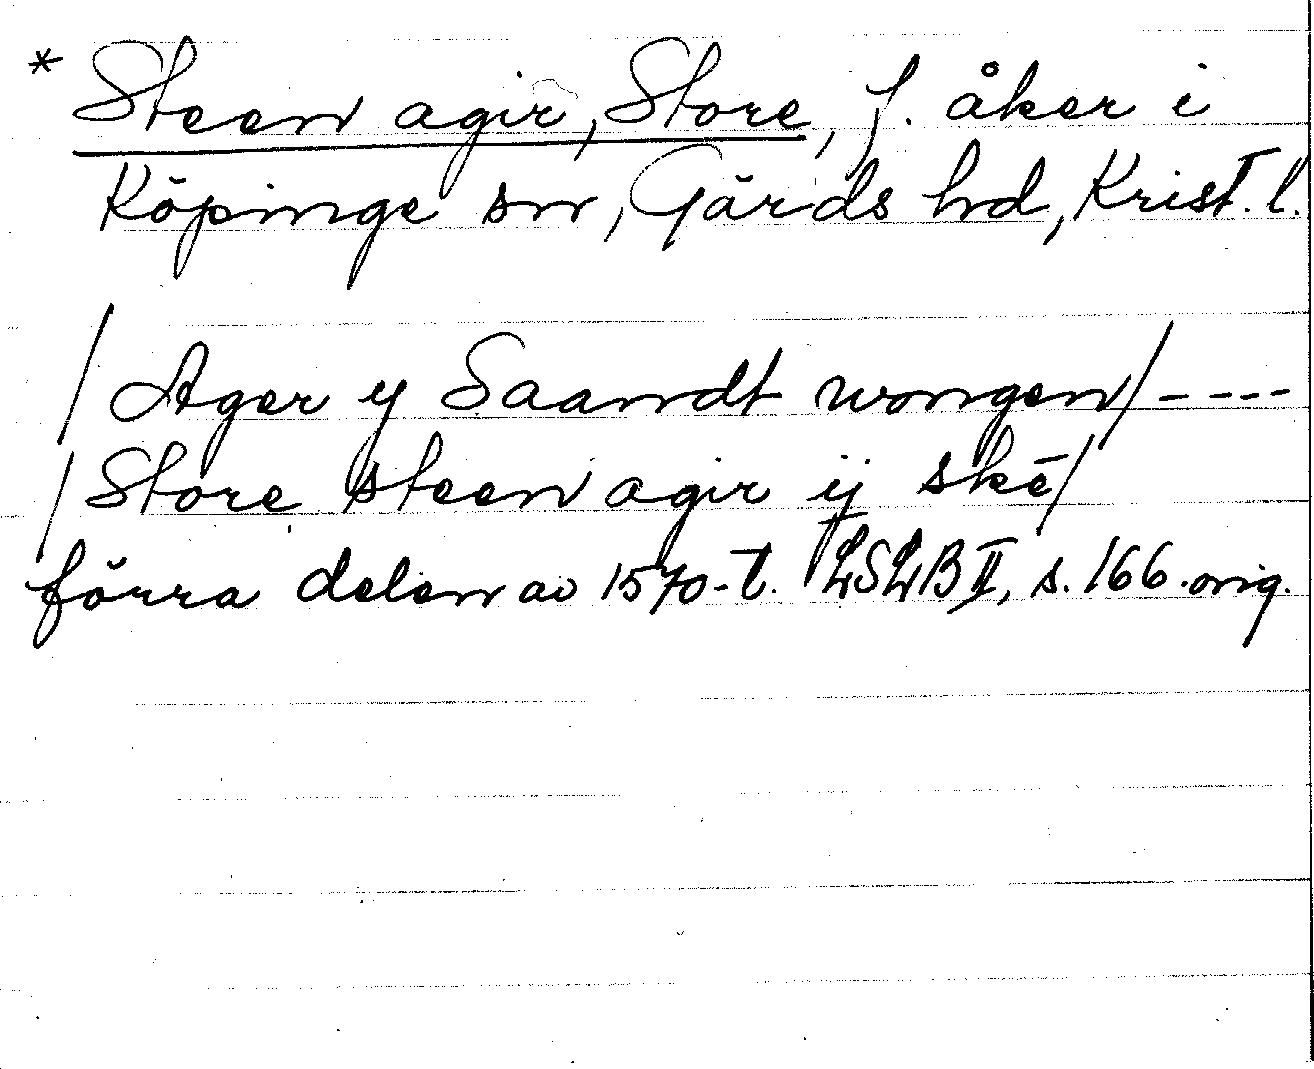 * Steen agir, Store, f. åker i
Köpinge sn, Gärds hd, Krist. l.
/Ager y Saandt wongen/ ----
/Store steen agir ij skē/
förra delen av 1570-t. LSLB II, s. 166. orig.